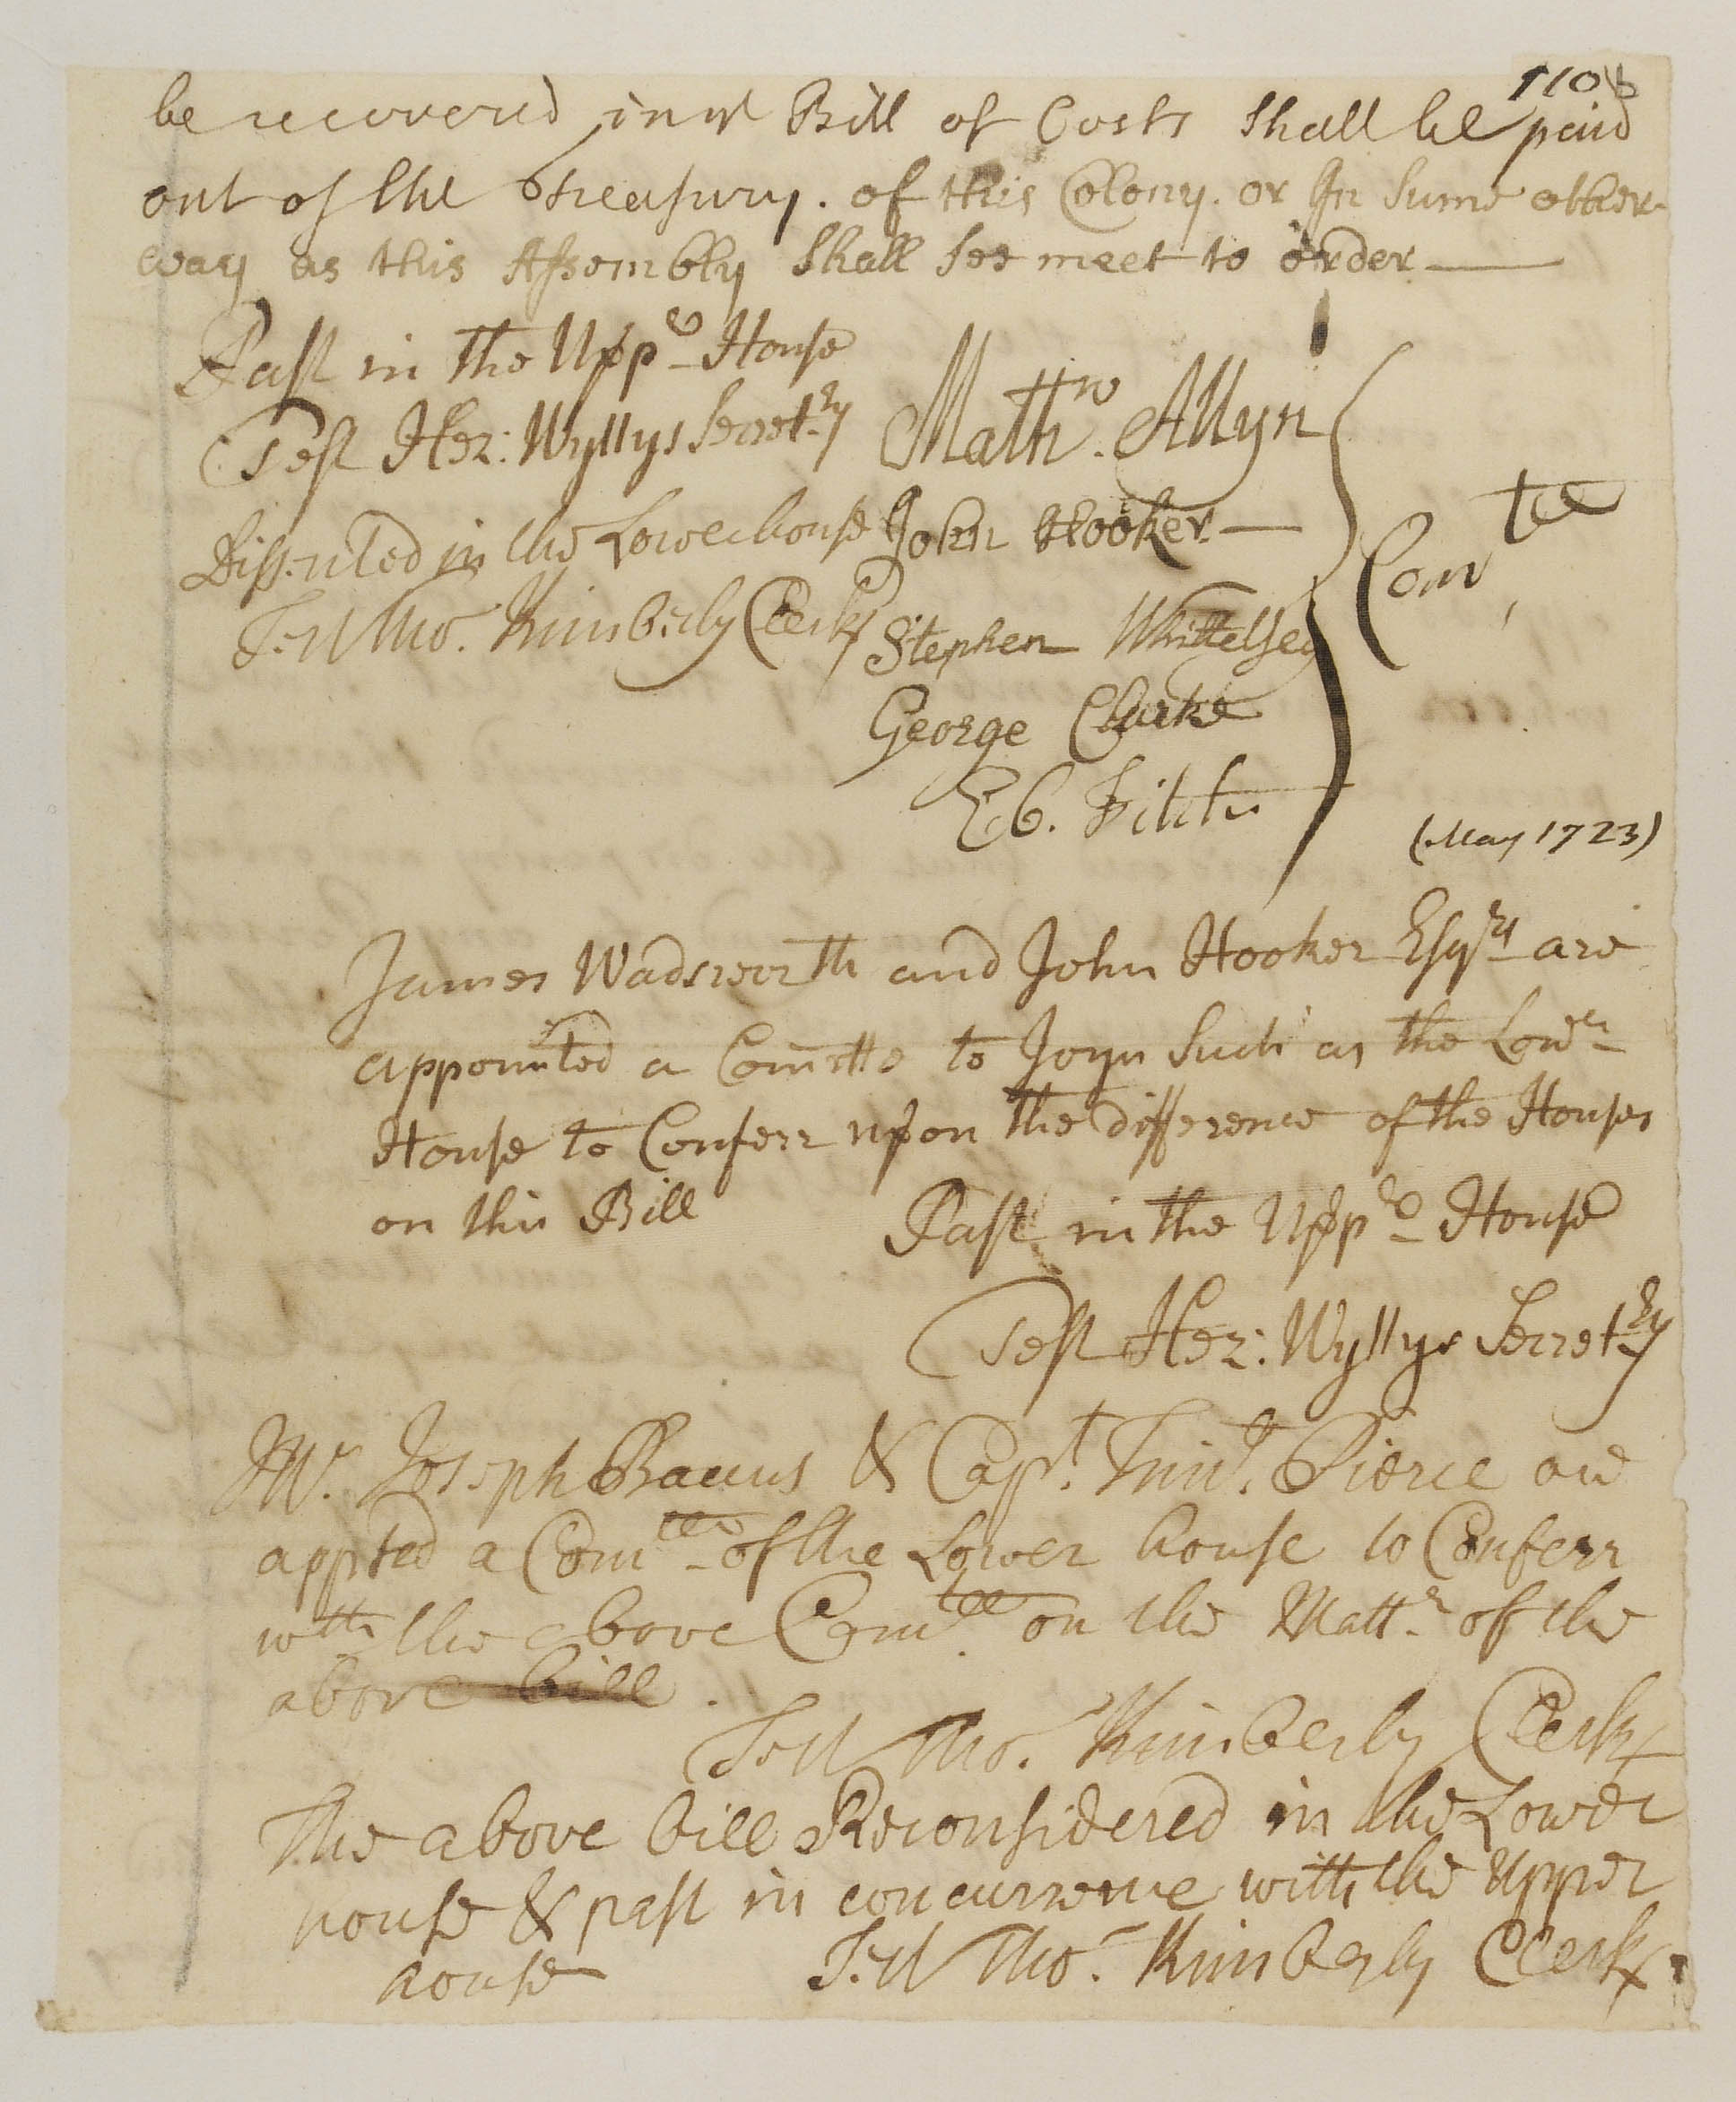 110b
be recovered in yt Bill of Costs Shall be paid
out of the Treasury. of this Colony. or In Sume other
way as this Assembly Shall See meet to order
Past in the Uppr House
Test Hez: Wyllys Secretry
Dissented in the Lower house
Test Tho. Kimberly Clerk
Matthw. Allyn
John Hooker
Stephen Whittelsey
George Clarke
Eb. Fitch
Comtee
(May 1723)
James Wadsworth and John Hooker Esqrs are
appointed a Comtte to Joyn Such as the Lowr
House to Conferr upon the difference of the Houses
on this Bill
Past in the Uppr House
Test Hez: Wyllys Secretry
Mr. Joseph Bacuus & Capt. Timt. Pierce are
appted a Comtee of the Lower house to Conferr
wth the above Comtee on the Mattr of the
above bill.
Test Tho. Kimberly Clerk
The above bill Reconsidered in the Lower
house & past in concurrence with the Upper
house
Test Tho. Kimberly Clerk